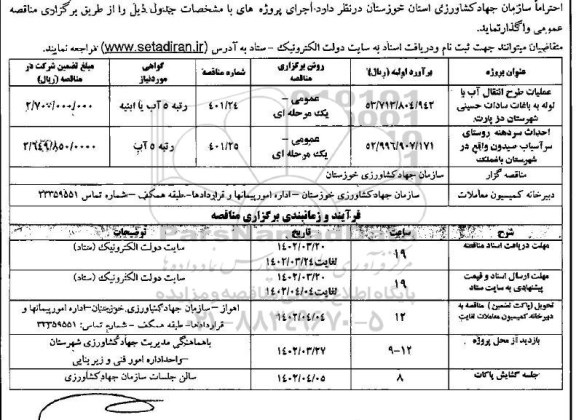 احتراماً سازمان جهادکشاورزی استان خوزستان درنظر دارد اجرای پروژه های با مشخصات جدول ذیل را از طریق برگزاری مناقصه
عمومی واگذارنماید.
متقاضیان میتوانند جهت ثبت نام ودریافت اسناد به سایت دولت الکترونیک - ستاد به آدرس (www.setadiran.ir) مراجعه نمایند.
عنوان پروژه برآورد اولیه (ریال) روش برگزاری مناقصه شماره مناقصه گواهی موردنیاز مبلغ تضمین شرکت در مناقصه (ریال)
عملیات طرح انتقال آب با لوله به باغات سادات حسینی شهرستان دز پارت ۵۳/۷۱۳/۸۰۴/۹۴۲ عمومی – یک مرحله ای ۴۰۱/۲۴ رتبه ۵ آب یا ابنیه ۲/۷۰۰/۰۰۰/۰۰۰
احداث سردهنه روستای سرآسیاب صیدون واقع در شهرستان باغملک ۵۲/۹۹۶/۹۰۷/۱۷۱ عمومی – یک مرحله ای ۴۰۱/۲۵ رتبه ۵ آب ۲/۶۴۹/۸۵۰/۰۰۰۰
مناقصه گزار سازمان جهادکشاورزی خوزستان
دبیرخانه کمیسیون معاملات سازمان جهادکشاورزی خوزستان – اداره امورپیمانها و قراردادها–طبقه همکف –شماره تماس ۳۳۳۵۹۵۵۱
فرآیند و زمانبندی برگزاری مناقصه
شرح ساعت تاریخ توضیحات
مهلت دریافت اسناد مناقصه ۱۹ ۱۴۰۲/۰۳/۲۰ لغایت ۱۴۰۲/۰۳/۲۴ سایت دولت الکترونیک (ستاد)
مهلت ارسال اسناد و قیمت پیشنهادی به سایت ستاد ۱۹ ۱۴۰۲/۰۳/۲۰ لغایت ۱۴۰۲/۰۴/۰۴ سایت دولت الکترونیک (ستاد)
تحویل (پاکت تضمین) مناقصه به دبیرخانه کمیسیون معاملات لغایت ۱۲ ۱۴۰۲/۰۴/۰۴ اهواز – سازمان جهادکشاورزی خوزستان–اداره امورپیمانها و قراردادها– طبقه همکف – شماره تماس: ۳۳۳۵۹۵۵۱
بازدید از محل پروژه ۹-۱۲ ۱۴۰۲/۰۳/۲۷ باهماهنگی مدیریت جهادکشاورزی شهرستان –واحداداره امور فنی و زیربنایی
جلسه گشایش پاکات ۸ ۱۴۰۲/۰۴/۰۵ سالن جلسات سازمان جهادکشاورزی
۰۲۱-۸۸۳۴۹۶۷۰-۵